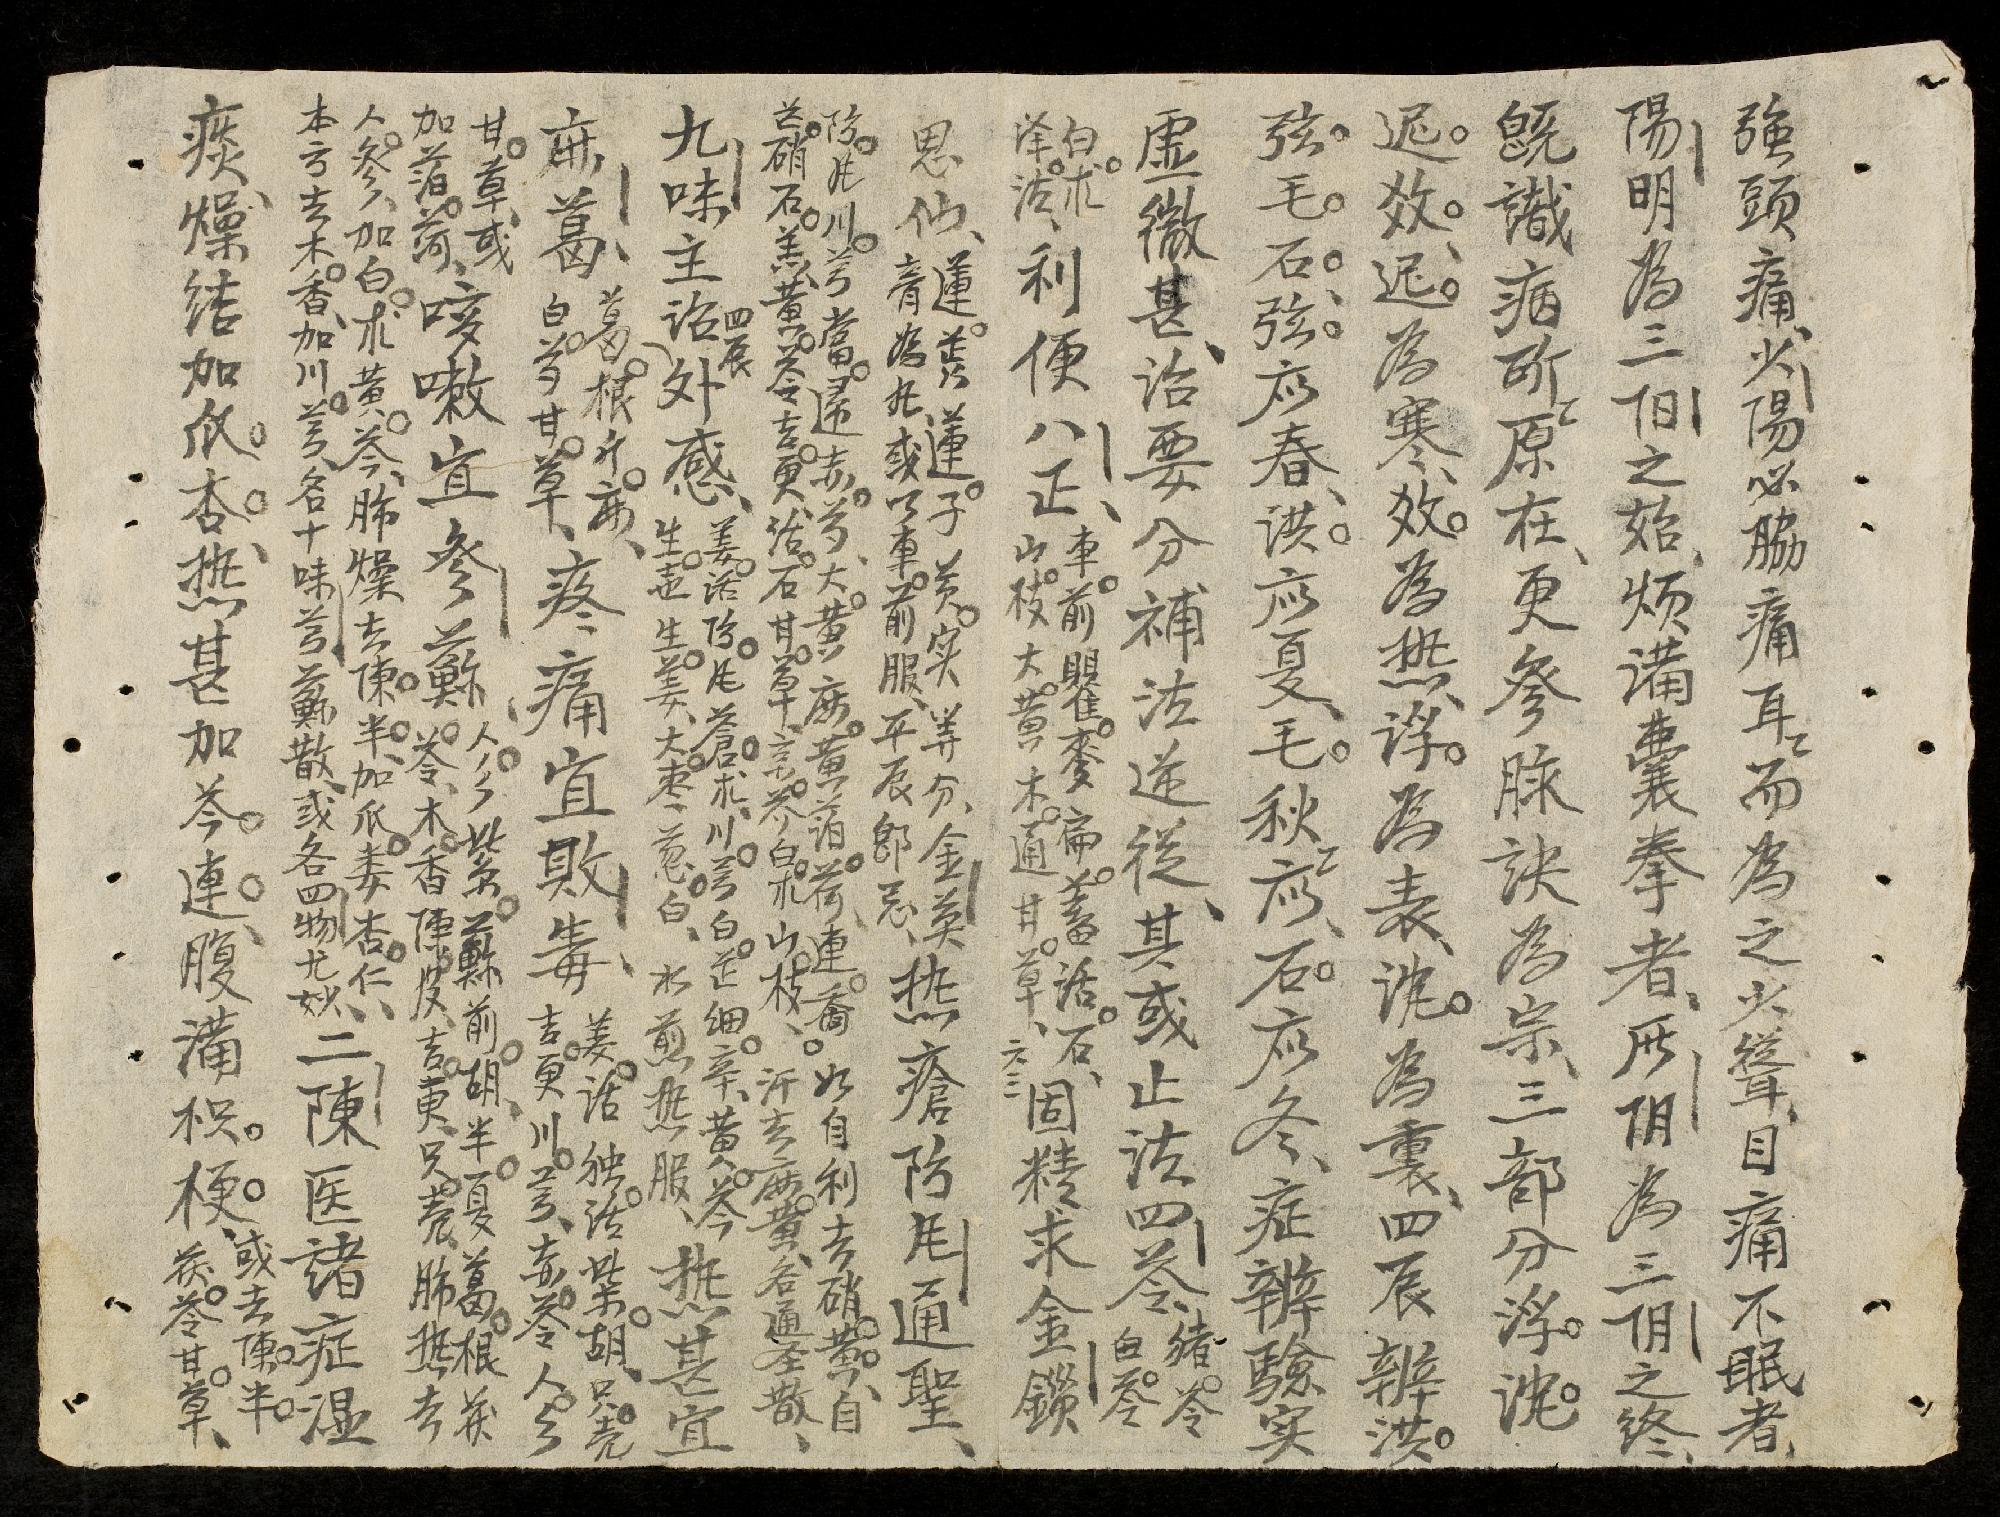 強頭痛、少陽必脇痛耳〻而為之少聾、目痛不眠者、
陽明為三阳之始、煩满囊拳者、厥阴為三阴之終、
既識病所〻原在、更參脉訣為宗、三部分浮沈
遲數、遲為寒、數為热、浮為表、沈為裏、四辰辨洪
弦毛石、弦应春、洪应夏、毛秋〻应、石应冬、症辨驗实
虚微甚、治要分補法逆從、其或止法四苓、
猪苓
白苓
白朮
泽泻、
利便八正、
車前瞿麥萹蓄活石、
山枝大黄木通甘草、
六三
固精求金鎖
思仙、
蓮蕋蓮子芡实等分、金英
膏為丸或以車前服、平辰郎忌、
热瘡防風通聖、
防風川芎當歸赤芍、大黄麻黄薄荷連喬
芒硝石羔黄芩吉更活石甘草、辛芥白朮山枝、
如自利去硝黄、自
汗去麻黄、名通圣散、
九味主治外感、
四辰
羌活防風蒼朮、川芎白芷細辛、黄芩
生苄生姜大枣葱白、水煎热服、
热甚宜
麻葛
葛根升麻、
白芍甘草、
疼痛宜敗毒、
羌活独活柴胡、只壳
吉更川芎、赤苓人參
甘草、或
加薄荷、
咳嗽宜參蘇、
人參紫蘇前胡、半夏葛根茯
苓、木香陳皮、吉更、只壳、肺热去
人參、加白朮黄芩、肺燥去陳半、加瓜蒌杏仁、
本方去木香、加川芎、名十味芎蘇散、或名四物尤妙、
二陳医諸症湿
痰、燥结加瓜杏、热甚加芩連、腹满枳梗、
或去陳半
茯苓甘草、